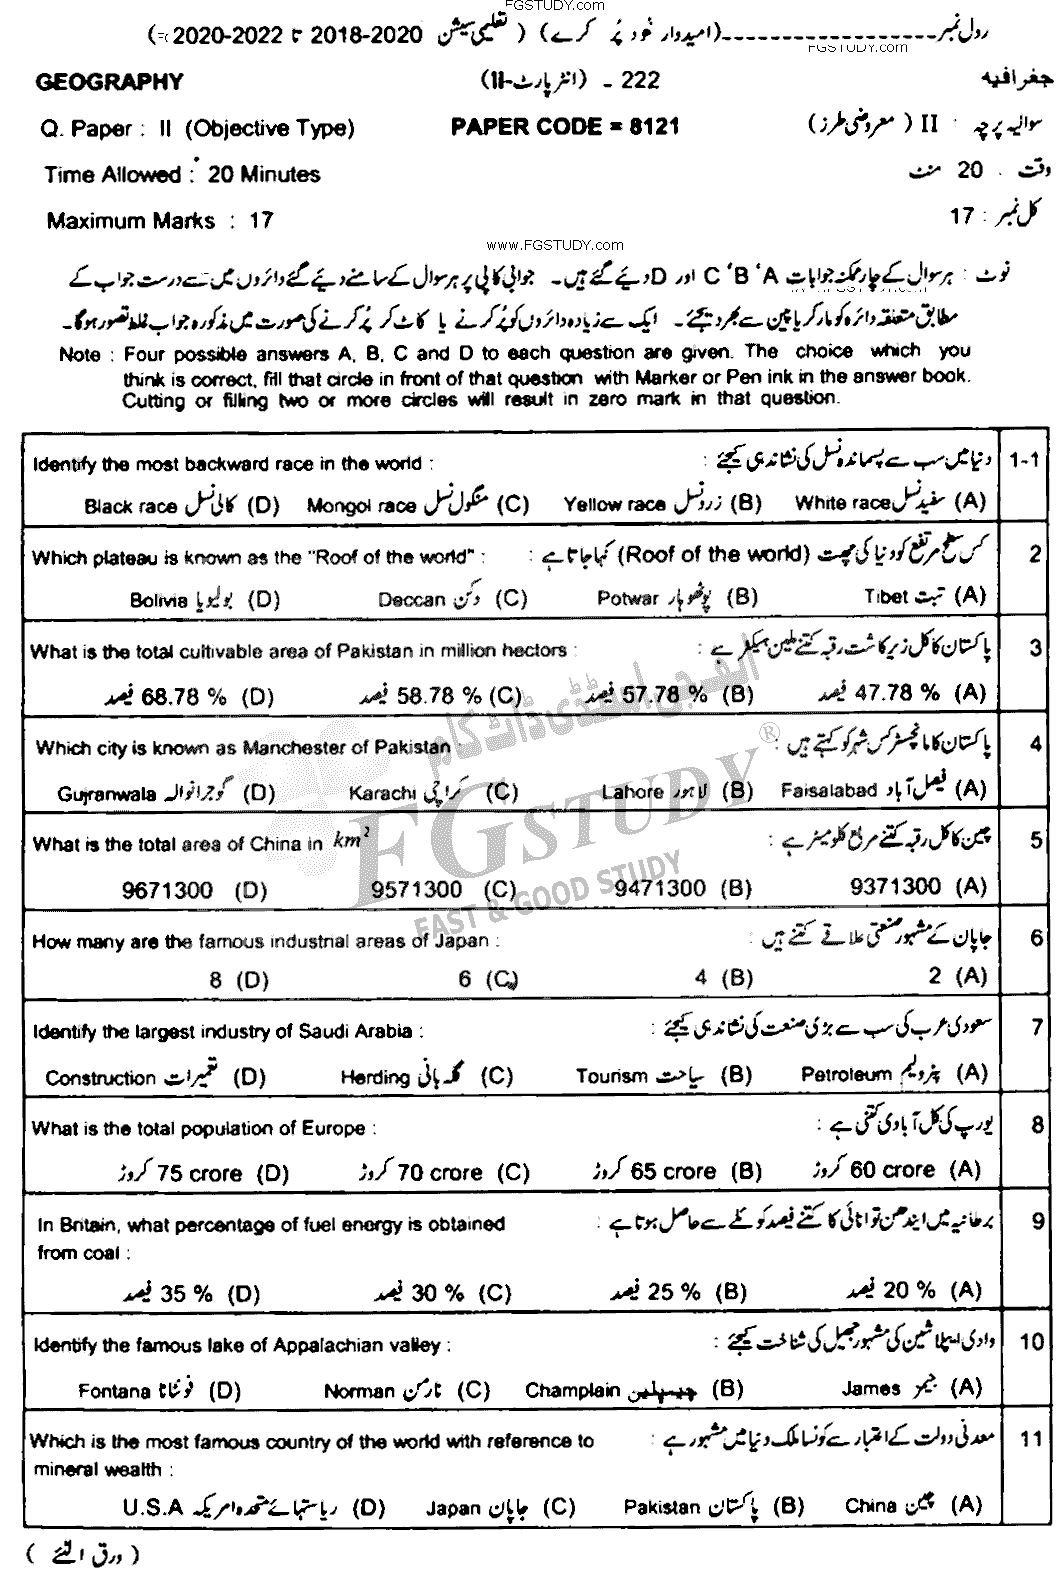 FGSTUDY.com
رول نمبر ------------------(امیدوار خود پُر کرے) ( تعلیمی سیشن 2018-2020 تا 2020-2022 )
FGSTUDY.com
GEOGRAPHY 222 - (انٹر پارٹ-II) جغرافیہ
Q. Paper : II (Objective Type) PAPER CODE = 8121 سوالیہ پرچہ : II ( معروضی طرز )
Time Allowed : 20 Minutes وقت : 20 منٹ
Maximum Marks : 17 کل نمبر : 17
www.FGSTUDY.com
نوٹ : ہر سوال کے چار ممکنہ جوابات A ' B ' C اور D دیئے گئے ہیں۔ جوابی کاپی پر ہر سوال کے سامنے دیئے گئے دائروں میں سے درست جواب کے
مطابق متعلقہ دائرہ کو مارکر یا پین سے بھر دیجئے۔ ایک سے زیادہ دائروں کو پُر کرنے یا کاٹ کر پُر کرنے کی صورت میں مذکورہ جواب غلط تصور ہوگا۔
Note : Four possible answers A, B, C and D to each question are given. The choice which you
think is correct, fill that circle in front of that question with Marker or Pen ink in the answer book.
Cutting or filling two or more circles will result in zero mark in that question.
Identify the most backward race in the world : دنیا میں سب سے پسماندہ نسل کی نشاندہی کیجئے : 1-1
Black race کالی نسل (D) Mongol race منگول نسل (C) Yellow race زرد نسل (B) White race سفید نسل (A)
Which plateau is known as the "Roof of the world" : کس سطح مرتفع کو دنیا کی چھت (Roof of the world) کہا جاتا ہے : 2
Bolivia بولیویا (D) Deccan دکن (C) Potwar پوٹھوہار (B) Tibet تبت (A)
What is the total cultivable area of Pakistan in million hectors : پاکستان کا کل زیر کاشت رقبہ کتنے ملین ہیکٹر ہے : 3
فیصد 68.78 % (D) فیصد 58.78 % (C) فیصد 57.78 % (B) فیصد 47.78 % (A)
Which city is known as Manchester of Pakistan : پاکستان کا مانچسٹر کس شہر کو کہتے ہیں : 4
Gujranwala گوجرانوالہ (D) Karachi کراچی (C) Lahore لاہور (B) Faisalabad فیصل آباد (A)
What is the total area of China in km² چین کا کل رقبہ کتنے مربع کلومیٹر ہے : 5
9671300 (D) 9571300 (C) 9471300 (B) 9371300 (A)
How many are the famous industrial areas of Japan : جاپان کے مشہور صنعتی علاقے کتنے ہیں : 6
8 (D) 6 (C) 4 (B) 2 (A)
Identify the largest industry of Saudi Arabia : سعودی عرب کی سب سے بڑی صنعت کی نشاندہی کیجئے : 7
Construction تعمیرات (D) Herding گلہ بانی (C) Tourism سیاحت (B) Petroleum پٹرولیم (A)
What is the total population of Europe : یورپ کی کل آبادی کتنی ہے : 8
کروڑ 75 crore (D) کروڑ 70 crore (C) کروڑ 65 crore (B) کروڑ 60 crore (A)
In Britain, what percentage of fuel energy is obtained برطانیہ میں ایندھن توانائی کا کتنے فیصد کوئلے سے حاصل ہوتا ہے : 9
from coal :
فیصد 35 % (D) فیصد 30 % (C) فیصد 25 % (B) فیصد 20 % (A)
Identify the famous lake of Appalachian valley : وادی اپیلاشین کی مشہور جھیل کی شناخت کیجئے : 10
Fontana فونٹانا (D) Norman نارمن (C) Champlain چیمپلین (B) James جیمز (A)
Which is the most famous country of the world with reference to معدنی دولت کے اعتبار سے کونسا ملک دنیا میں مشہور ہے : 11
mineral wealth :
U.S.A ریاستہائے متحدہ امریکہ (D) Japan جاپان (C) Pakistan پاکستان (B) China چین (A)
( ورق الٹئے )
ایف جی اسٹڈی ڈاٹ کام
FGSTUDY ®
FAST & GOOD STUDY